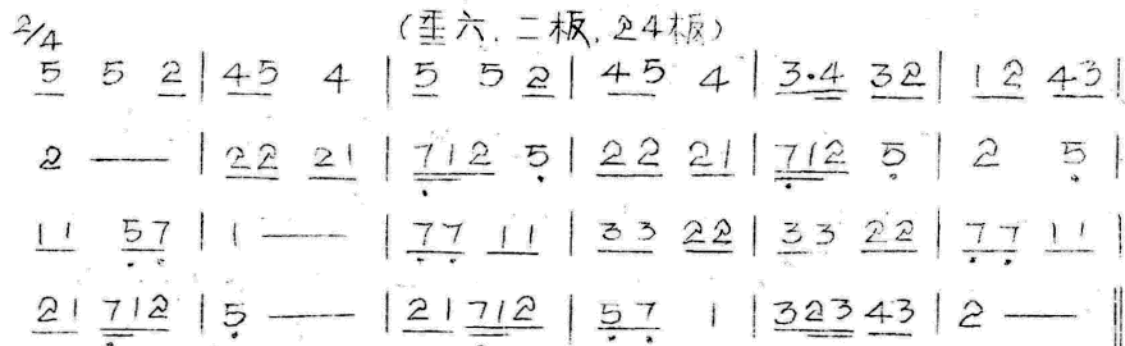 2/4 (垩六. 二板. 24板)
5 5 2 | 45 4 | 5 5 2 | 45 4 | 3·4 32 | 12 43 |
2 — | 22 21 | 712 5 | 22 21 | 712 5 | 2 5 |
11 57 | 1 — | 77 11 | 33 22 | 33 22 | 77 11 |
21 712 | 5 — | 21 712 | 57 1 | 323 43 | 2 — ‖